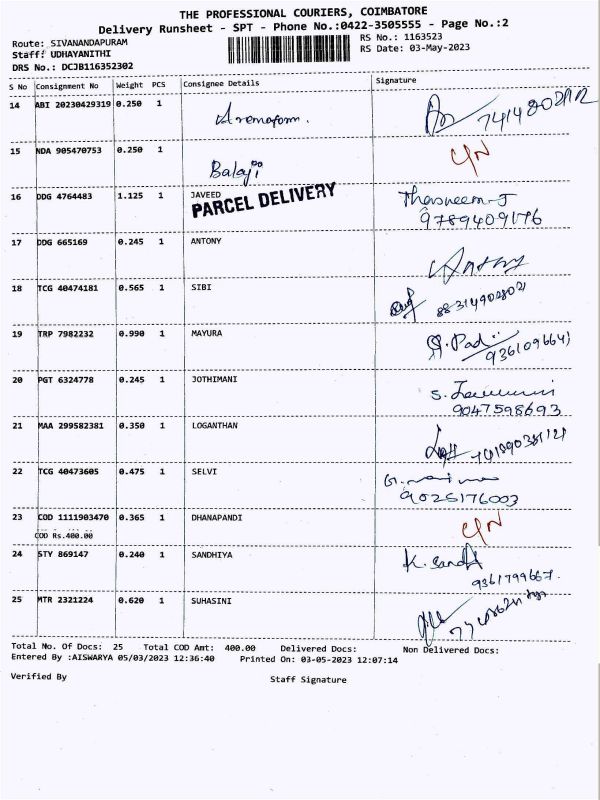 THE PROFESSIONAL COURIERS, COIMBATORE
Delivery Runsheet - SPT - Phone No.:0422-3505555 - Page No.:2
Route: SIVANANDAPURAM
Staff: UDHAYANITHI
DRS No.: DCJB116352302
RS No.: 1163523
RS Date: 03-May-2023
S No Consignment No Weight PCS Consignee Details Signature
14 ABI 20230429319 0.250 1
15 NDA 905470753 0.250 1 Balaji
16 DDG 4764483 1.125 1 JAVEED Thasneem-J
PARCEL DELIVERY 9789409176
17 DDG 665169 0.245 1 ANTONY Antony
18 TCG 40474181 0.565 1 SIBI
19 TRP 7982232 0.990 1 MAYURA
20 PGT 6324778 0.245 1 JOTHIMANI
9047598693
21 MAA 299582381 0.350 1 LOGANTHAN
22 TCG 40473605 0.475 1 SELVI
9025176003
23 COD 1111903470 0.365 1 DHANAPANDI
COD Rs.400.00
24 STY 869147 0.240 1 SANDHIYA
9361799667.
25 MTR 2321224 0.620 1 SUHASINI
Total No. Of Docs: 25 Total COD Amt: 400.00 Delivered Docs: Non Delivered Docs:
Entered By :AISWARYA 05/03/2023 12:36:40 Printed On: 03-05-2023 12:07:14
Verified By Staff Signature